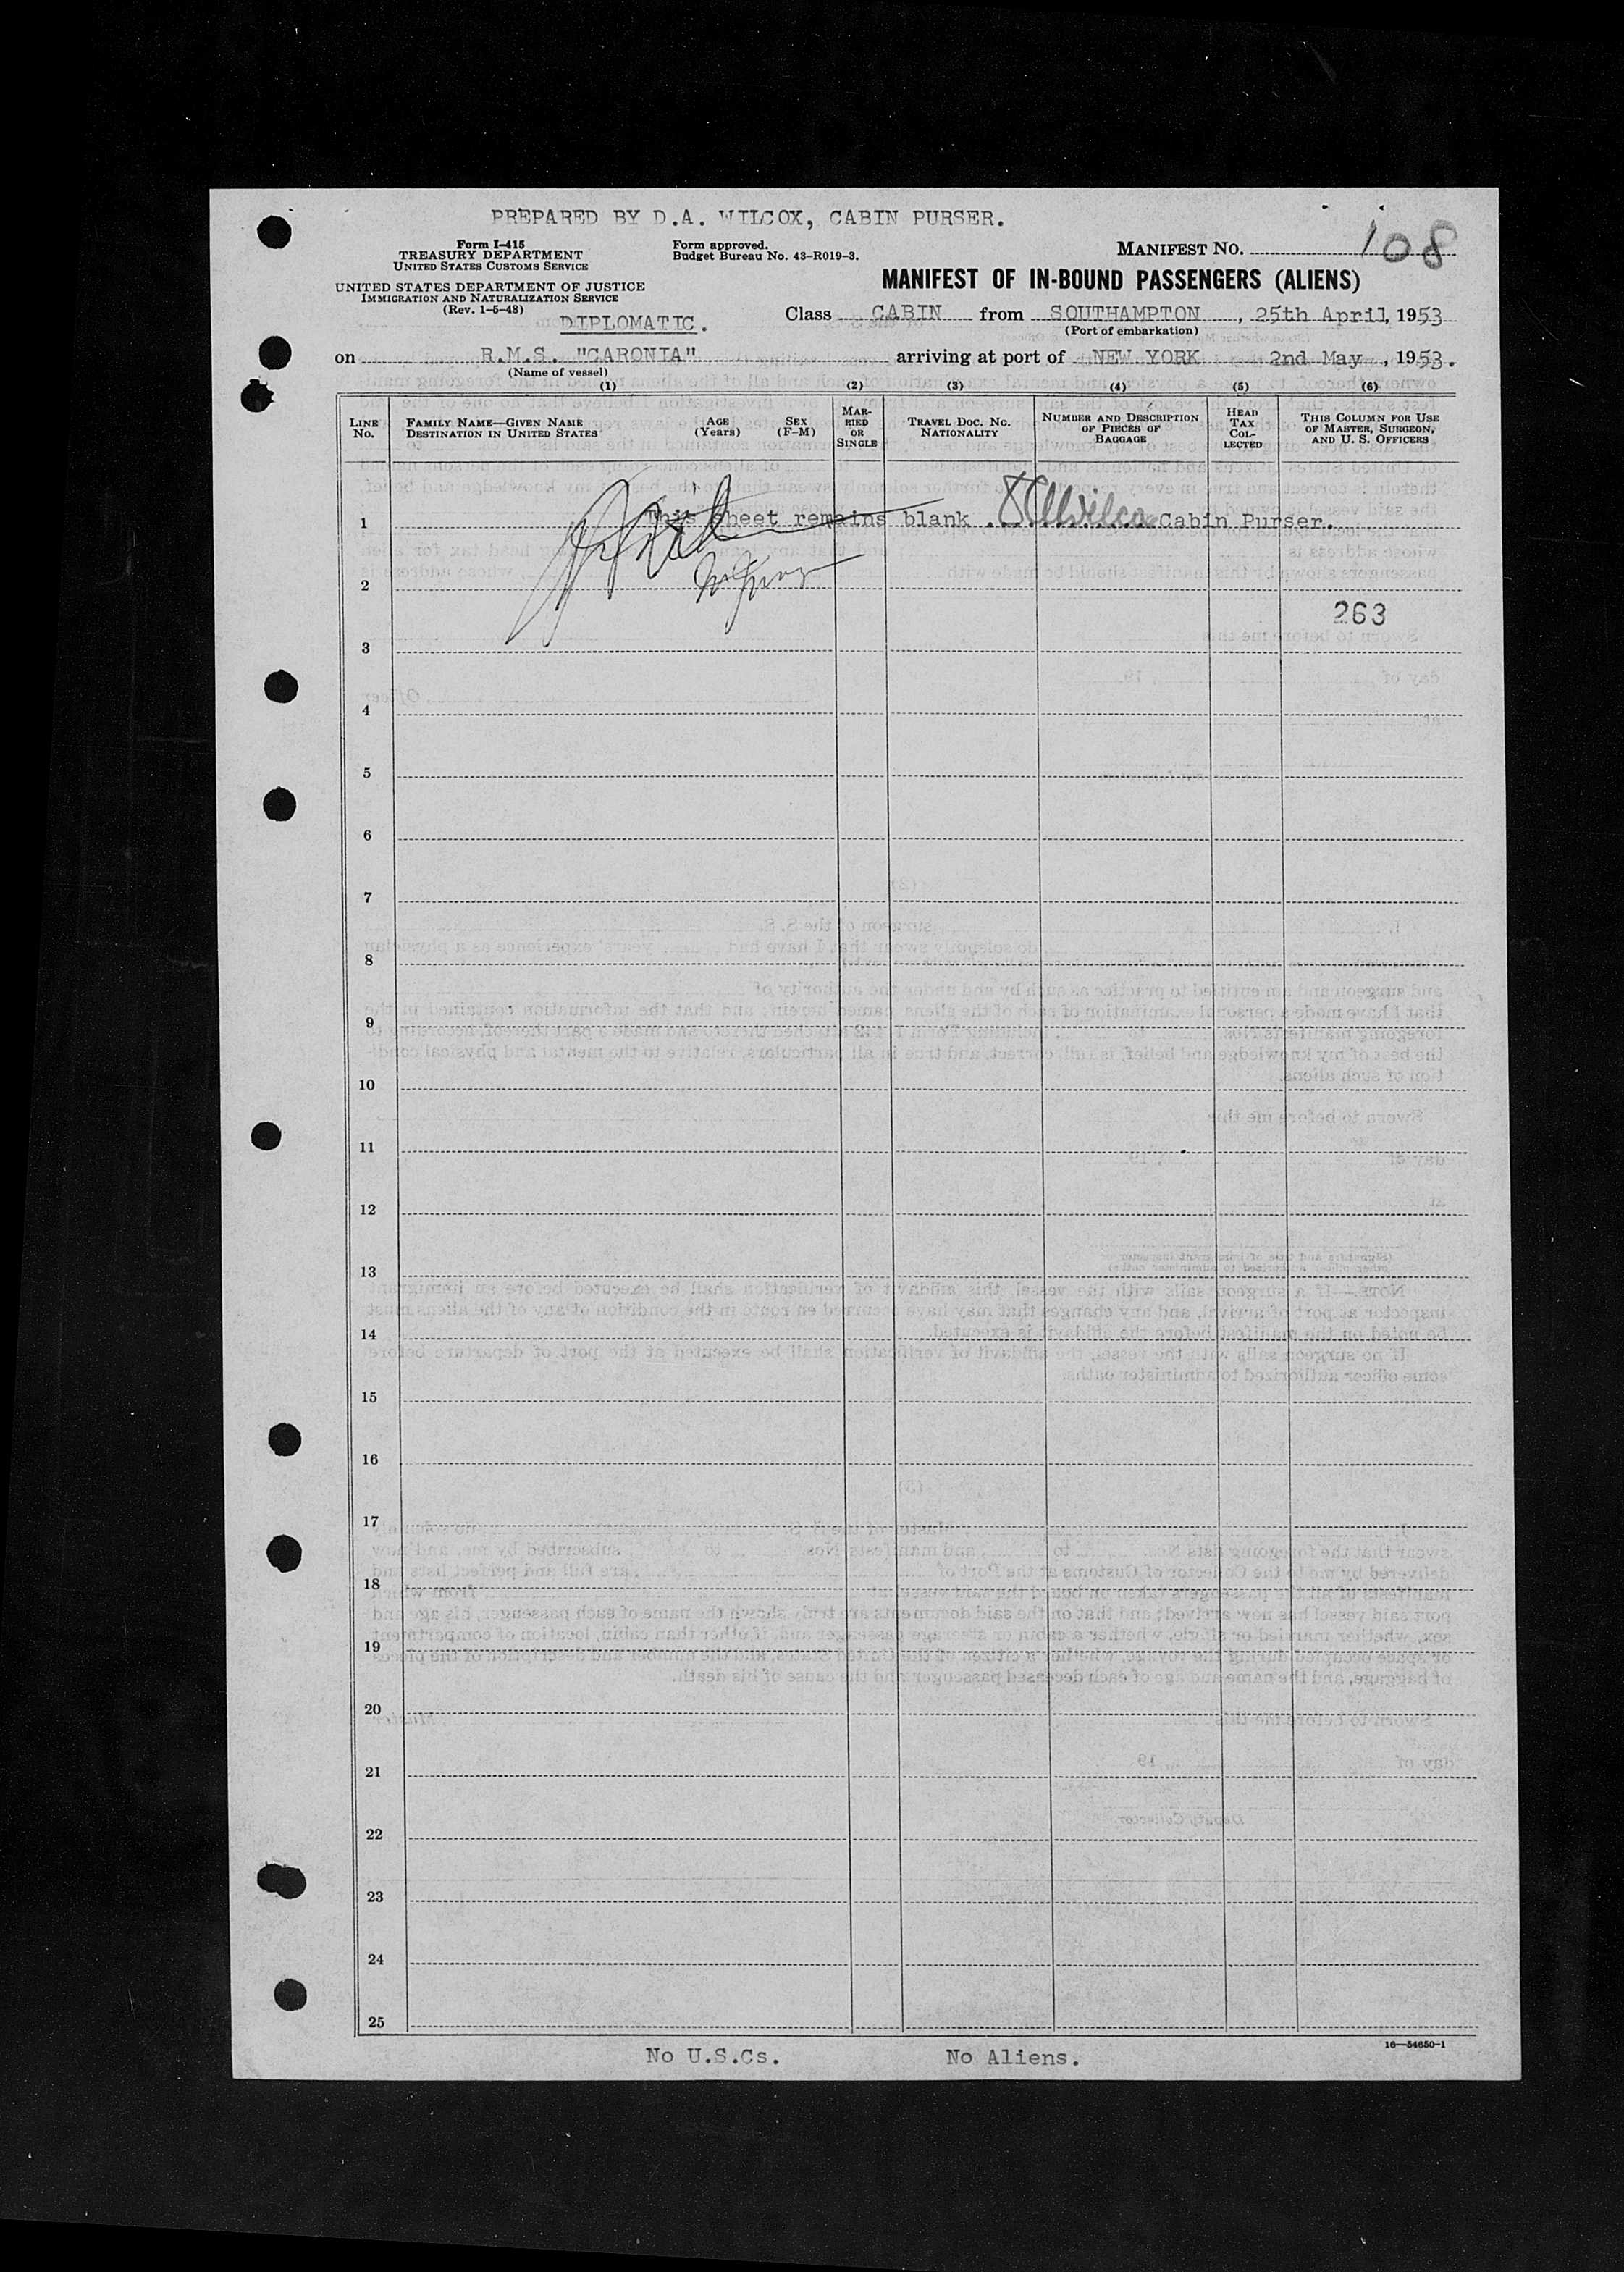 PREPARED BY D.A. WILCOX, CABIN PURSER.
Form I-415
TREASURY DEPARTMENT
UNITED STATES CUSTOMS SERVICE
UNITED STATES DEPARTMENT OF JUSTICE
IMMIGRATION AND NATURALIZATION SERVICE
(Rev. 1-5-48)
Form approved.
Budget Bureau No. 43-R019-3.
MANIFEST NO. 108
MANIFEST OF IN-BOUND PASSENGERS (ALIENS)
DIPLOMATIC.
Class CABIN from SOUTHAMPTON, 25th April, 1953
(Port of embarkation)
on R.M.S. "CARONIA" arriving at port of NEW YORK 2nd May, 1953.
(Name of vessel)
(1) (2) (3) (4) (5) (6)
LINE No.
FAMILY NAME—GIVEN NAME DESTINATION IN UNITED STATES
AGE (Years)
SEX (F-M)
MARRIED OR SINGLE
TRAVEL DOC. NO. NATIONALITY
NUMBER AND DESCRIPTION OF PIECES OF BAGGAGE
HEAD TAX COLLECTED
THIS COLUMN FOR USE OF MASTER, SURGEON, AND U. S. OFFICERS
1 This sheet remains blank. Cabin Purser.
2
263
3
4
5
6
7
8
9
10
11
12
13
14
15
16
17
18
19
20
21
22
23
24
25
16—54650-1
No U.S.Cs. No Aliens.